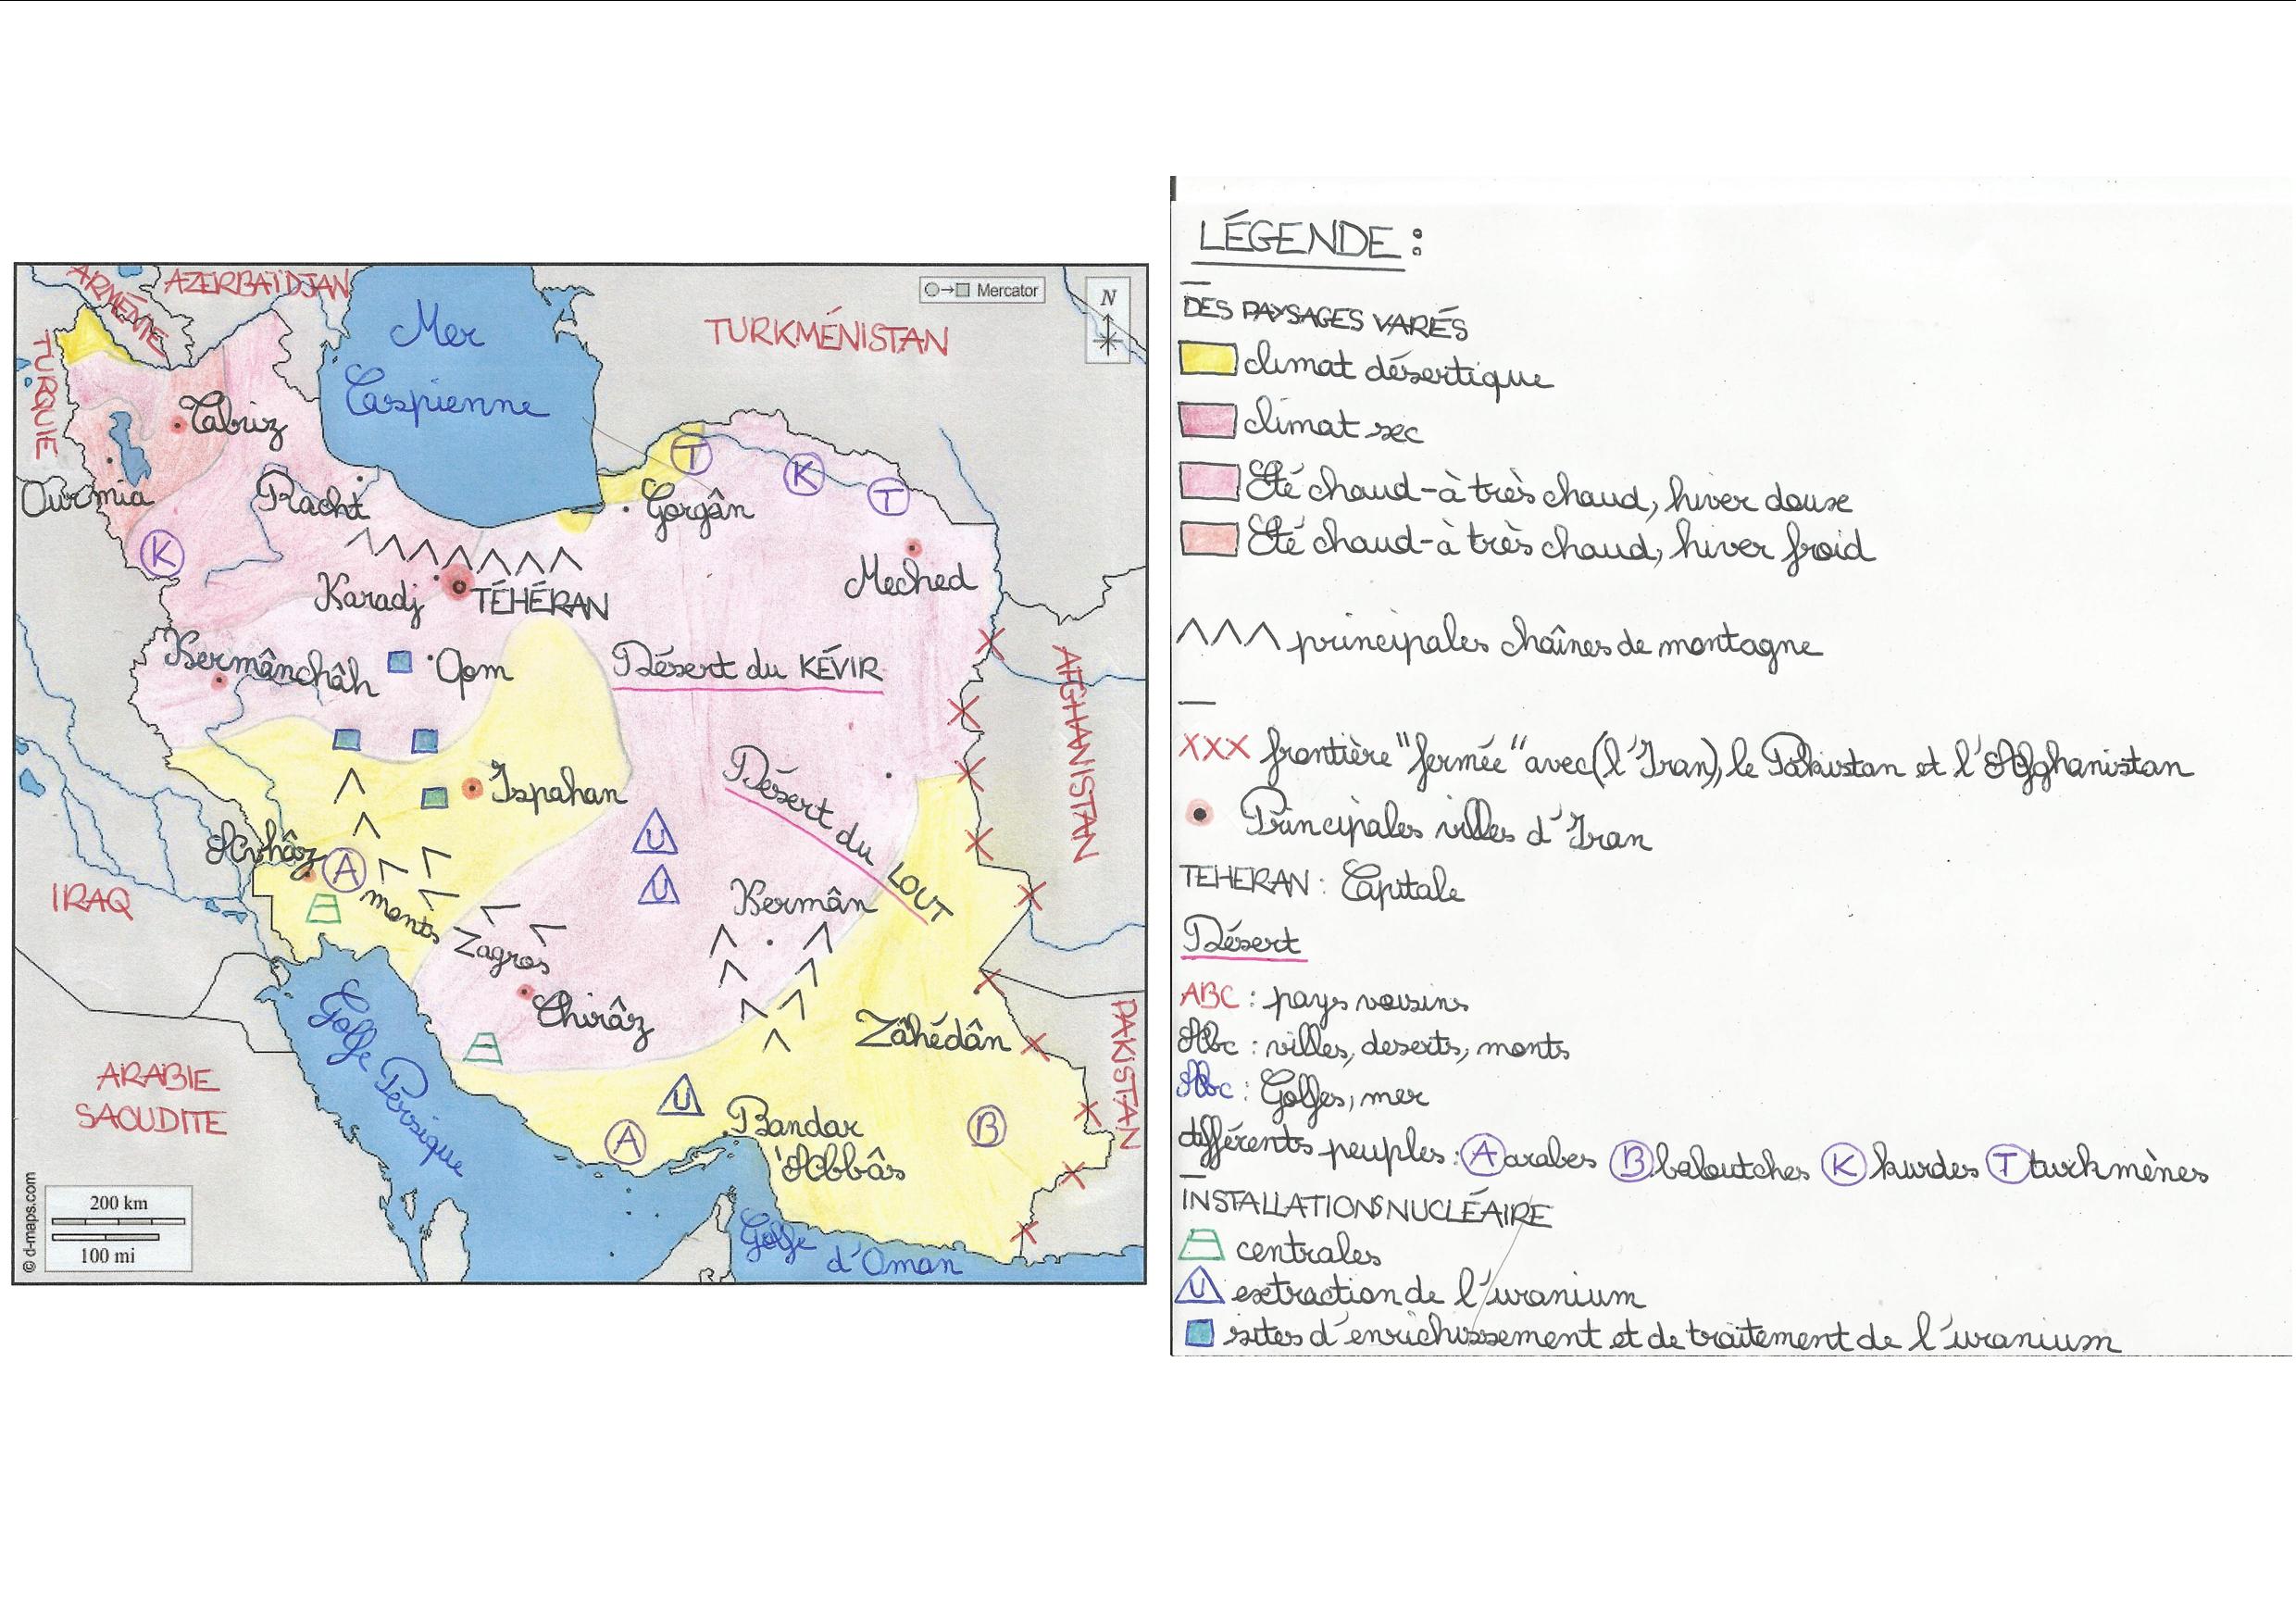 ARMÉNIE
AZERBAÏDJAN
TURQUIE
Mer
Caspienne
Mercator
N
TURKMÉNISTAN
Tabriz
Ourmia
Racht
K
T
K
T
Gorgân
Meched
Karadj
TÉHÉRAN
Kermânchâh
Qom
Désert du KÉVIR
AFGHANISTAN
Ispahan
Désert du LOUT
U
U
Ahvâz
A
monts
Zagros
Kermân
IRAQ
Chirâz
Zâhédân
PAKISTAN
Golfe Persique
ARABIE
SAOUDITE
U
A
Bandar
'Abbâs
B
Golfe
d'Oman
200 km
100 mi
© d-maps.com
LÉGENDE :
DES PAYSAGES VARIÉS
climat désertique
climat sec
Été chaud-à très chaud, hiver doux
Été chaud-à très chaud, hiver froid
principales chaînes de montagne
XXX frontière "fermée" avec (l'Iran), le Pakistan et l'Afghanistan
Principales villes d'Iran
TEHERAN : Capitale
Désert
ABC : pays voisins
Abc : villes, deserts, monts
Abc : Golfes, mer
différents peuples : A arabes B baloutches K kurdes T turkmènes
INSTALLATIONS NUCLÉAIRE
centrales
U extraction de l'uranium
sites d'enrichissement et de traitement de l'uranium